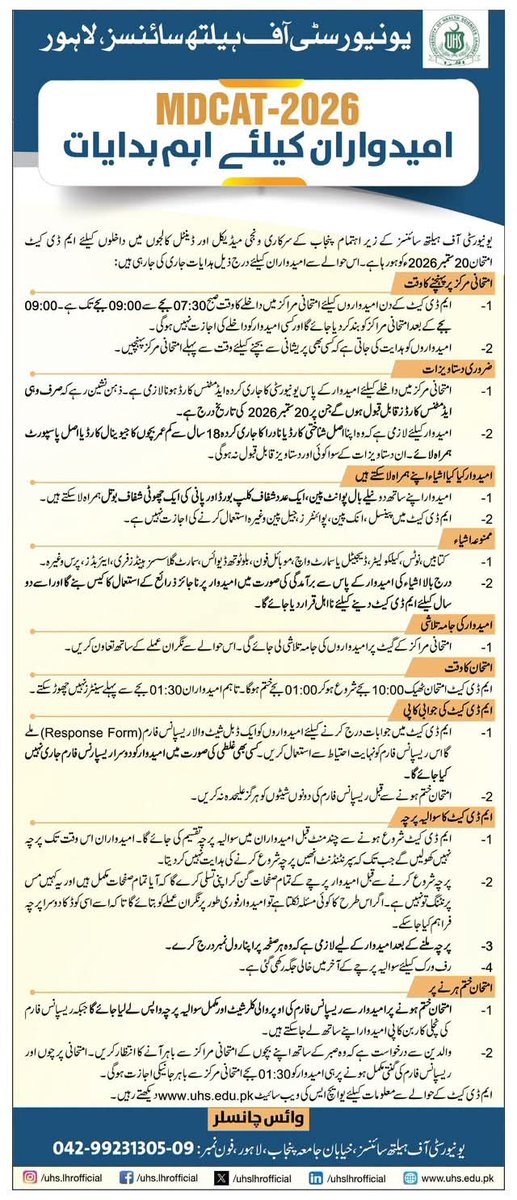 یونیورسٹی آف ہیلتھ سائنسز، لاہور
UHS
MDCAT-2026
امیدواران کیلئے اہم ہدایات
یونیورسٹی آف ہیلتھ سائنسز کے زیر اہتمام پنجاب کے سرکاری و نجی میڈیکل اور ڈینٹل کالجوں میں داخلوں کیلئے ایم ڈی کیٹ
امتحان 20 ستمبر 2026 کو ہو رہا ہے۔ اس حوالے سے امیدواران کیلئے درج ذیل ہدایات جاری کی جا رہی ہیں:
امتحانی مرکز پر پہنچنے کا وقت
1- ایم ڈی کیٹ کے دن امیدواروں کیلئے امتحانی مراکز میں داخلے کا وقت صبح 07:30 بجے سے 09:00 بجے تک ہے۔ 09:00
بجے کے بعد امتحانی مراکز کو بند کر دیا جائے گا اور کسی امیدوار کو داخلے کی اجازت نہیں ہوگی۔
2- امیدواروں کو ہدایت کی جاتی ہے کہ کسی بھی پریشانی سے بچنے کیلئے وقت سے پہلے امتحانی مرکز پہنچیں۔
ضروری دستاویزات
1- امتحانی مرکز میں داخلے کیلئے امیدوار کے پاس یونیورسٹی کا جاری کردہ ایڈمٹنس کارڈ ہونا لازمی ہے۔ ذہن نشین رہے کہ صرف وہی
ایڈمٹنس کارڈز قابل قبول ہوں گے جن پر 20 ستمبر 2026 کی تاریخ درج ہے۔
2- امیدوار کیلئے لازمی ہے کہ وہ اپنا اصل شناختی کارڈ یا نادرا کا جاری کردہ 18 سال سے کم عمر بچوں کا جیونائل کارڈ یا اصل پاسپورٹ
ہمراہ لائے۔ ان دستاویزات کے سوا کوئی اور دستاویز قابل قبول نہ ہوگی۔
امیدوار کیا کیا اشیاء اپنے ہمراہ لا سکتے ہیں
1- امیدوار اپنے ساتھ دو نیلے بال پوائنٹ پین، ایک عدد شفاف کلپ بورڈ اور پانی کی ایک چھوٹی شفاف بوتل ہمراہ لا سکتے ہیں۔
2- ایم ڈی کیٹ میں پینسل، انک پین، پوائنٹرز، جیل پین وغیرہ استعمال کرنے کی اجازت نہیں ہے۔
ممنوعہ اشیاء
1- کتابیں، نوٹس، کیلکولیٹر، ڈیجیٹل یا سمارٹ واچ، موبائل فون، بلوٹوتھ ڈیوائس، سمارٹ گلاسسز، ہینڈز فری، ایئربڈز، پرس وغیرہ۔
2- درج بالا اشیاء کی امیدوار کے پاس سے برآمدگی کی صورت میں امیدوار پر ناجائز ذرائع کے استعمال کا کیس بنے گا اور اسے دو
سال کیلئے ایم ڈی کیٹ دینے کیلئے نااہل قرار دیا جائے گا۔
امیدوار کی جامہ تلاشی
1- امتحانی مراکز کے گیٹ پر امیدواروں کی جامہ تلاشی لی جائے گی۔ اس حوالے سے نگران عملے کے ساتھ تعاون کریں۔
امتحان کا وقت
ایم ڈی کیٹ امتحان ٹھیک 10:00 بجے شروع ہو کر 01:00 بجے ختم ہوگا۔ تاہم امیدواران 01:30 بجے سے پہلے سینٹر نہیں چھوڑ سکتے۔
ایم ڈی کیٹ کی جوابی کاپی
1- ایم ڈی کیٹ میں جوابات درج کرنے کیلئے امیدواروں کو ایک ڈبل شیٹ والا ریسپانس فارم (Response Form) ملے
گا اس ریسپانس فارم کو نہایت احتیاط سے استعمال کریں۔ کسی بھی غلطی کی صورت میں امیدوار کو دوسرا ریسپانس فارم جاری نہیں
کیا جائے گا۔
2- امتحان ختم ہونے سے قبل ریسپانس فارم کی دونوں شیٹوں کو ہرگز علیحدہ نہ کریں۔
ایم ڈی کیٹ کا سوالیہ پرچہ
1- ایم ڈی کیٹ شروع ہونے سے چند منٹ قبل امیدواران میں سوالیہ پرچہ تقسیم کی جائے گا۔ امیدواران اس وقت تک پرچہ
نہیں کھولیں گے جب تک کہ سپرنٹنڈنٹ انھیں پرچہ شروع کرنے کی ہدایت نہیں کر دیتا۔
2- پرچہ شروع کرنے سے قبل امیدوار پرچے کے تمام صفحات گن کر اپنی تسلی کرے گا کہ آیا تمام صفحات مکمل ہیں اور یہ کہیں مس
پرنٹنگ تو نہیں ہے۔ اگر اس طرح کا کوئی مسئلہ نکلتا ہے تو امیدوار فوری طور پر نگران عملے کو بتائے گا تا کہ اسے اسی کوڈ کا دوسرا پرچہ
فراہم کیا جا سکے۔
3- پرچہ ملنے کے بعد امیدوار کے لیے لازمی ہے کہ وہ ہر صفحہ پر اپنا رول نمبر درج کرے۔
4- رف ورک کیلئے سوالیہ پرچے کے آخر میں خالی جگہ رکھی گئی ہے۔
امتحان ختم ہرنے پر
1- امتحان ختم ہونے پر امیدوار سے ریسپانس فارم کی اوپر والی کلر شیٹ اور مکمل سوالیہ پرچہ واپس لے لیا جائے گا جبکہ ریسپانس فارم
کی نچلی کاربن کاپی امیدوار اپنے ساتھ لے جا سکتے ہیں۔
2- والدین سے درخواست ہے کہ وہ صبر کے ساتھ اپنے بچوں کے امتحانی مراکز سے باہر آنے کا انتظار کریں۔ امتحانی پرچوں اور
ریسپانس فارم کی گنتی مکمل ہونے پر ہی امیدوار کو 01:30 بجے امتحانی مرکز سے باہر جانیکی اجازت ہوگی۔
ایم ڈی کیٹ کے حوالے سے معلومات کیلئے یو ایچ ایس کی ویب سائیٹ www.uhs.edu.pk دیکھتے رہیں۔
وائس چانسلر
یونیورسٹی آف ہیلتھ سائنسز، خیابان جامعہ پنجاب، لاہور، فون نمبر: 09-99231305-042
/uhs.lhrofficial /uhs.lhrofficial /uhslhrofficial /uhslhrofficial www.uhs.edu.pk